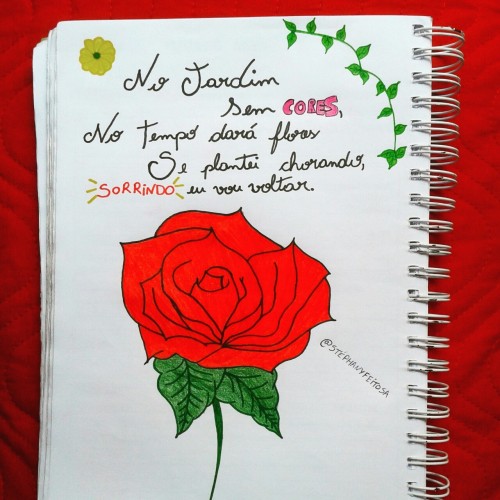 No Jardim
Sem CORES,
No tempo dará flores
Se plantei chorando,
SORRINDO eu vou voltar.
@STEPHANYFEITOSA